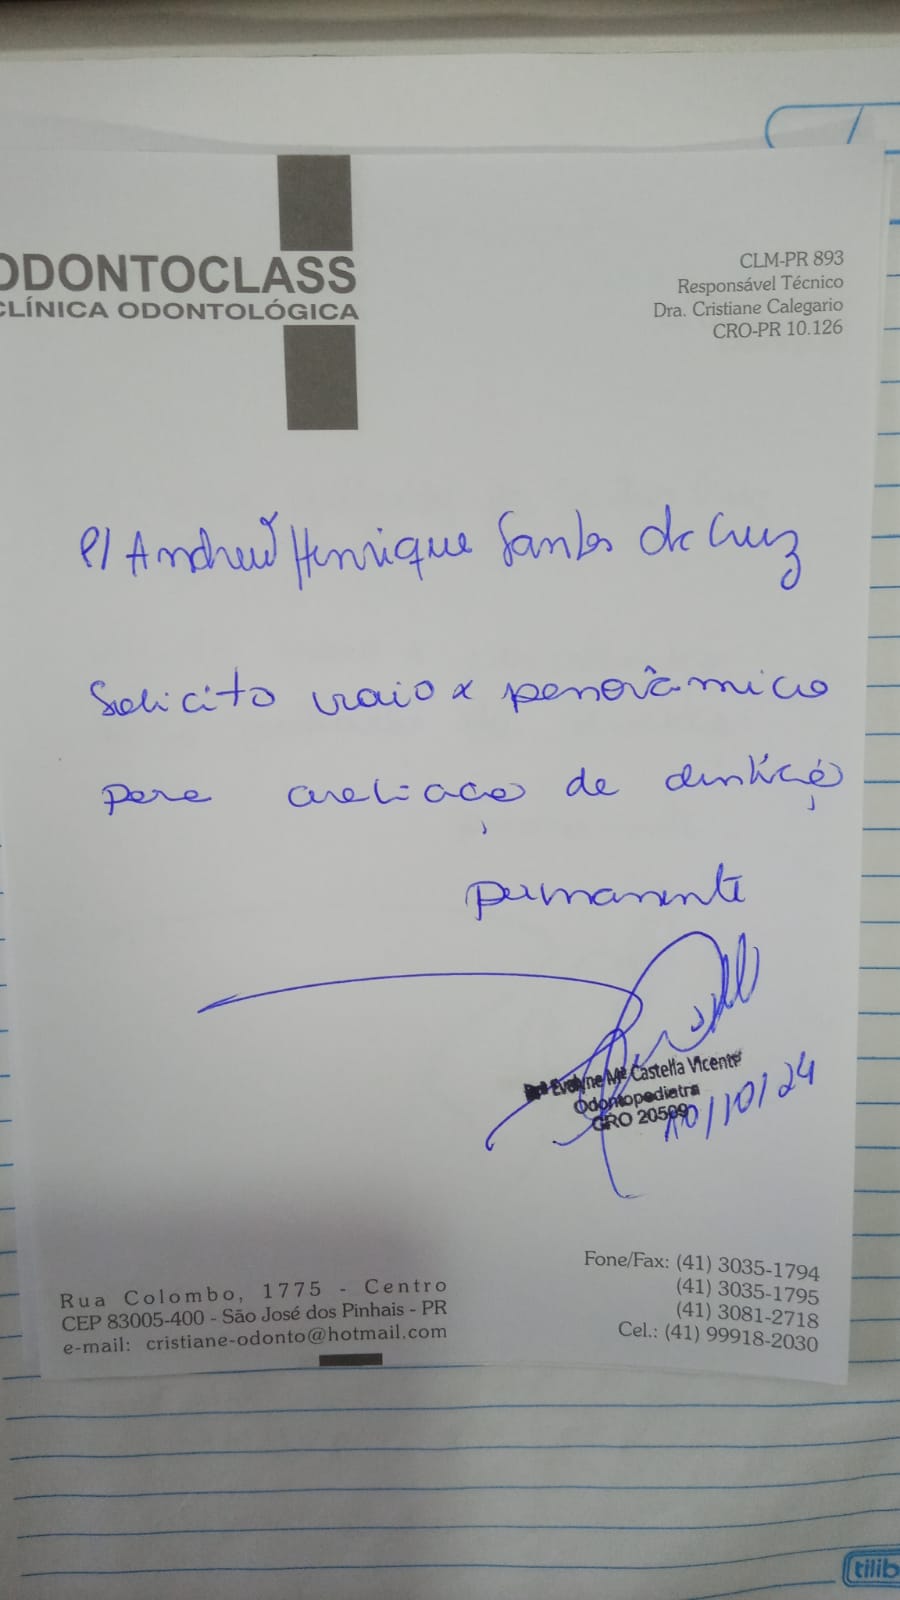 ODONTOCLASS
CLÍNICA ODONTOLÓGICA
CLM-PR 893
Responsável Técnico
Dra. Cristiane Calegario
CRO-PR 10.126
P/ Andrew Henrique Santos da Cruz
Solicito raio x panorâmico
para avaliação de dentição
permanente
Evelyne Mª Castella Vicente
Odontopediatra
CRO 20509
10/10/24
Rua Colombo, 1775 - Centro
CEP 83005-400 - São José dos Pinhais - PR
e-mail: cristiane-odonto@hotmail.com
Fone/Fax: (41) 3035-1794
(41) 3035-1795
(41) 3081-2718
Cel.: (41) 99918-2030
tilib